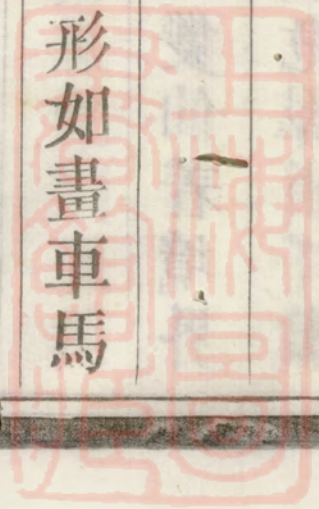 形如畫車馬